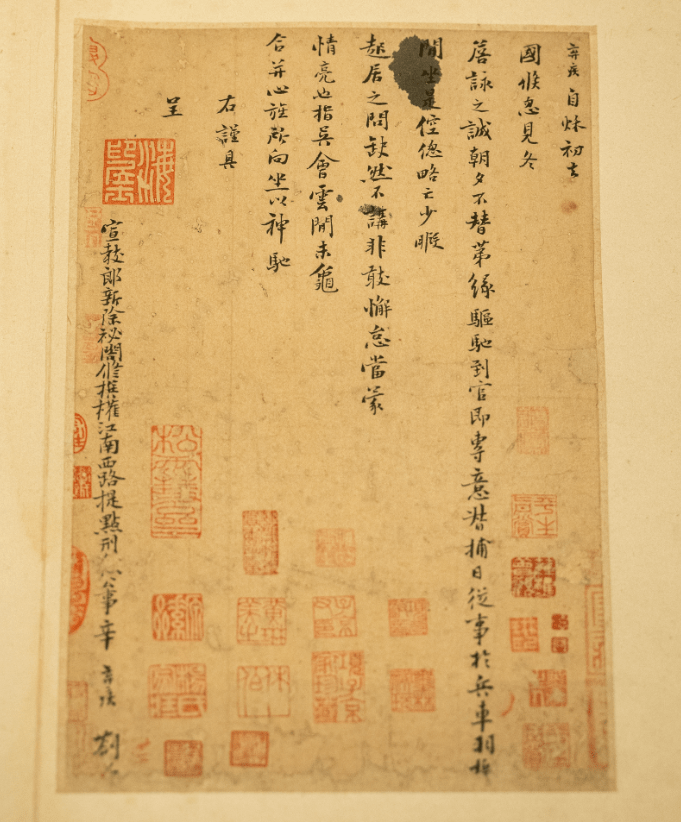 棄疾自秌初去
國倏忽見冬
詹詠之誠朝夕不替第緣驅馳到官即專意督捕日從事於兵車羽檄
間坐是倥傯略亡少暇
起居之問缺然不講非敢懈怠當蒙
情亮也指吳會雲間未龜
合并心旌所向坐以神馳
右謹具
呈
宣教郎新除祕閣修撰權江南西路提點刑獄公事辛棄疾劄子